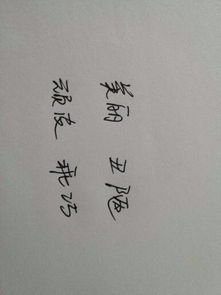 美丽 丑陋
顽皮 乖巧